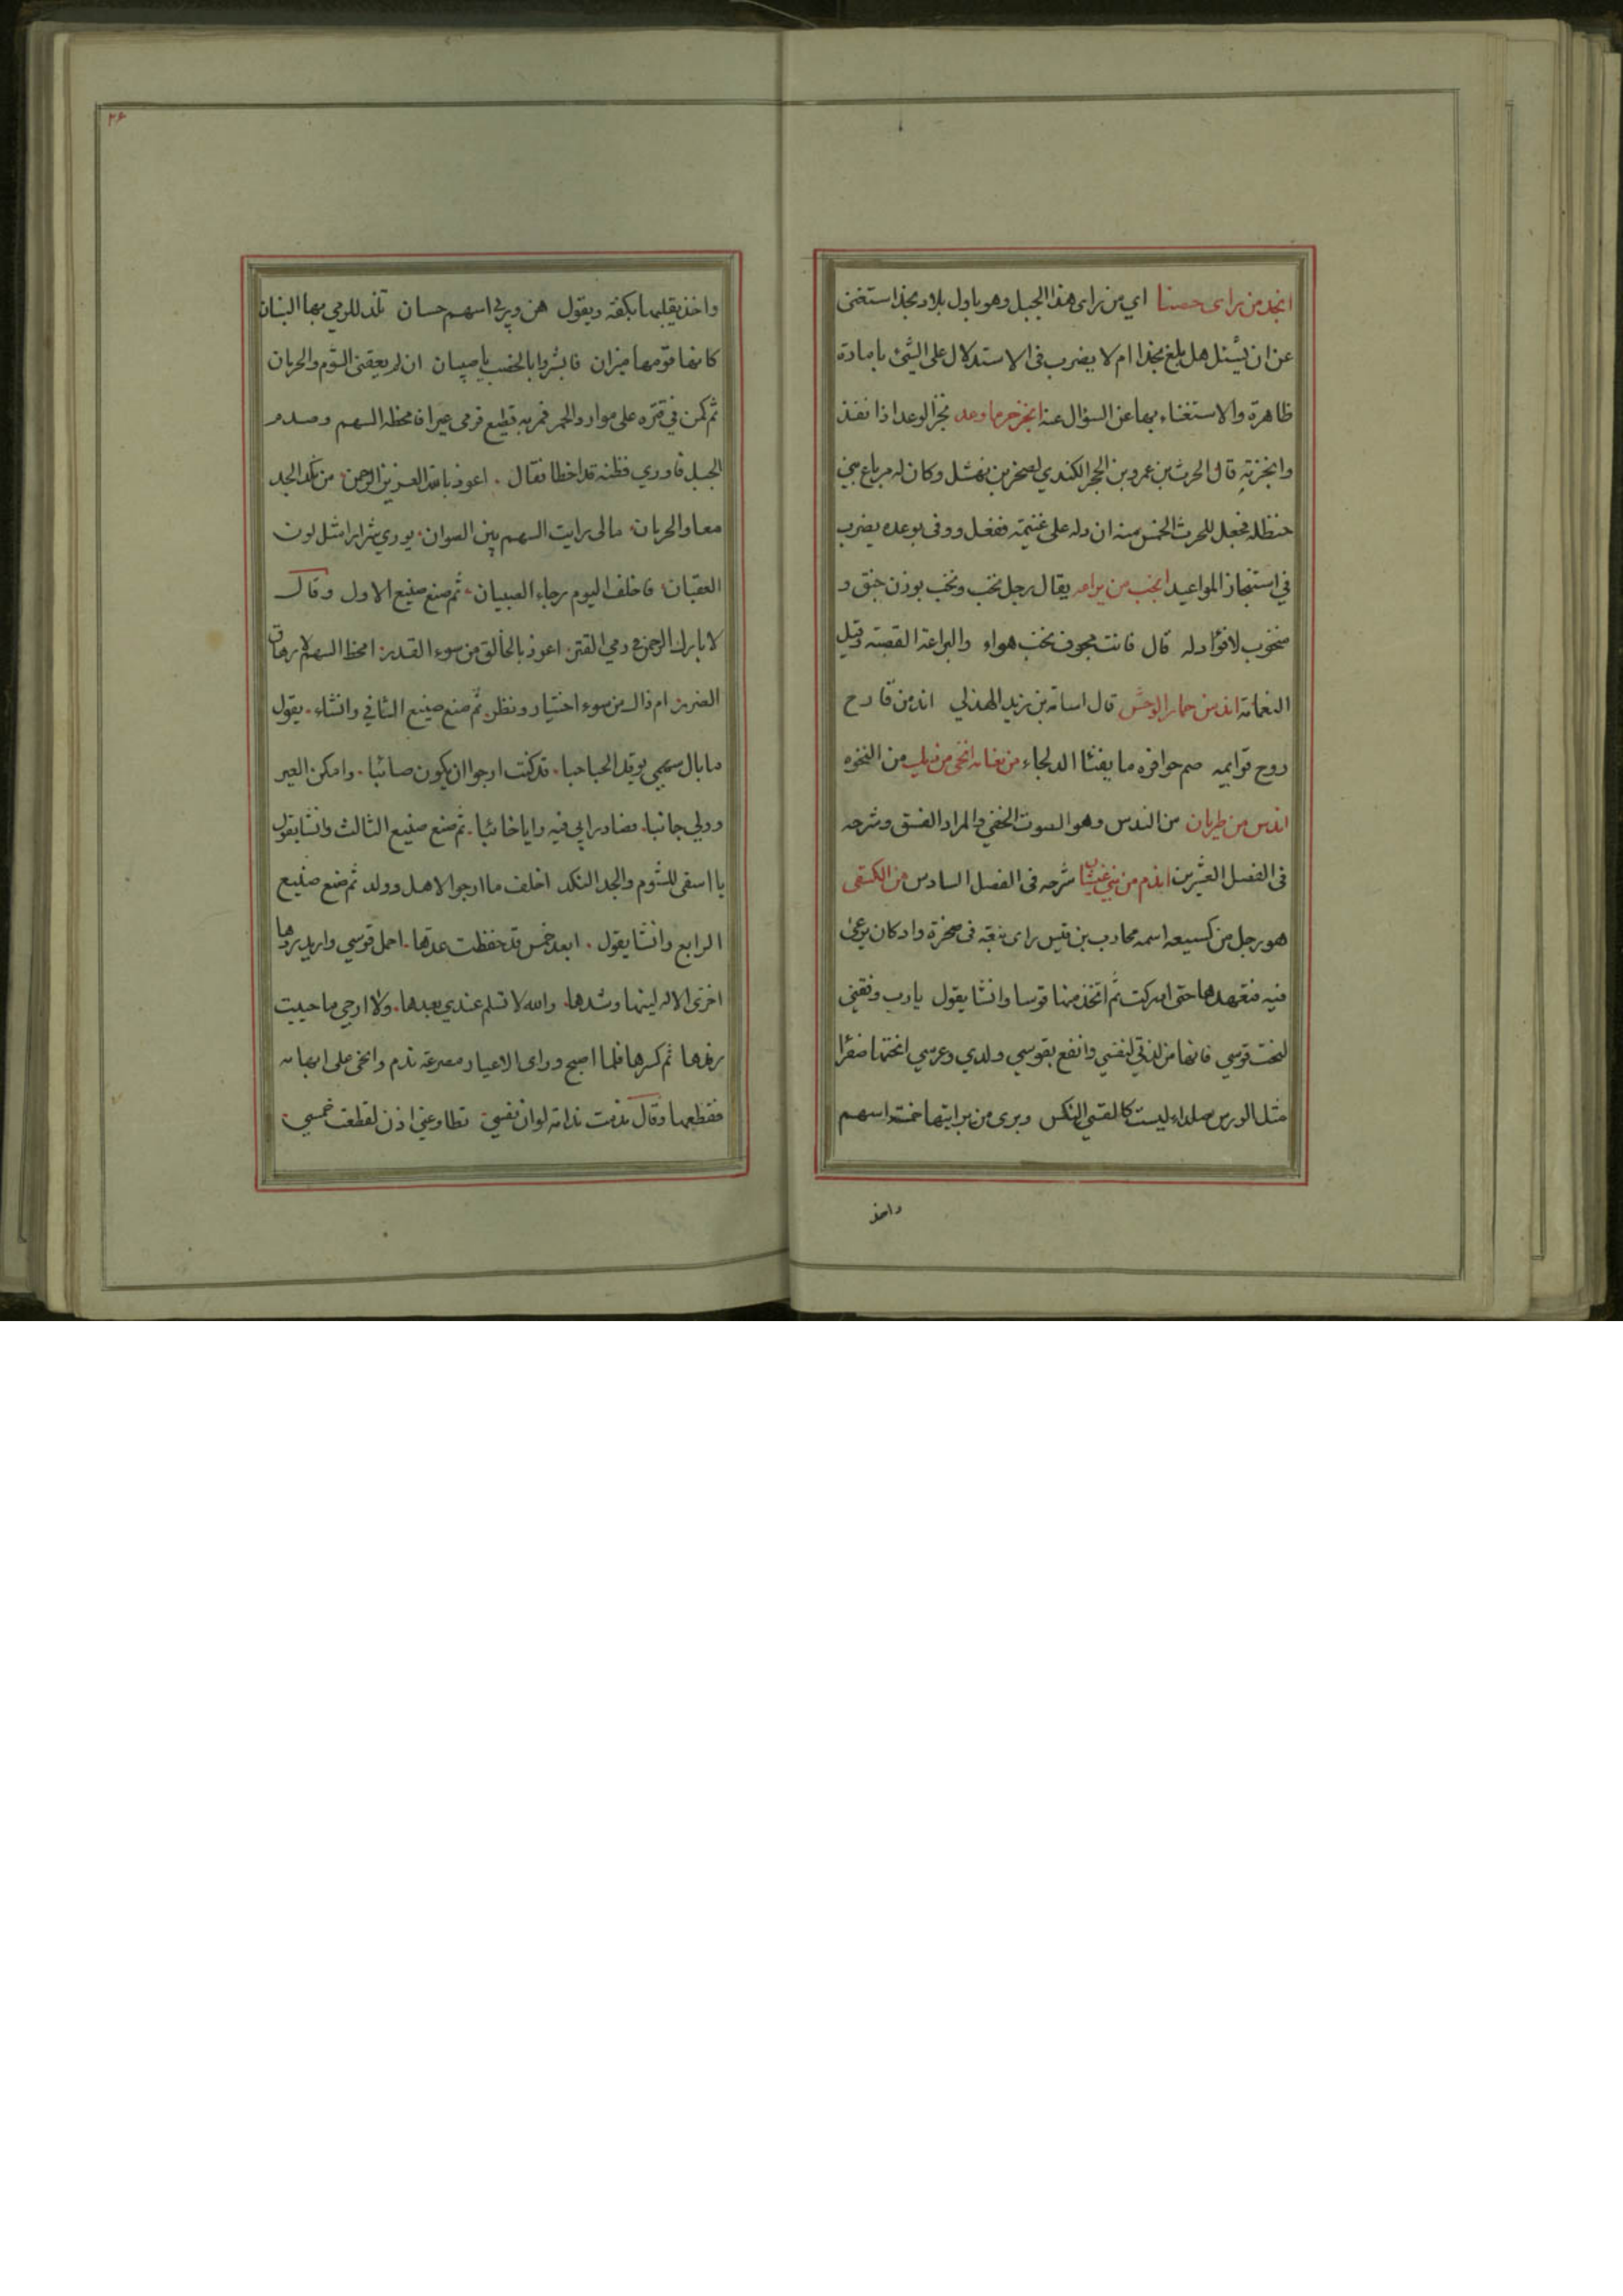 انجد من رای حضنا ای من رای هذا الجبل وهو باول بلاد نجد استغنی
عن ان یسئل هل بلغ نجدا ام لا یضرب فی الاستدلال علی الشیئ بامارة
ظاهرة والاستغناء بها عن السؤال عنه انجز حر ما وعد نجز الوعد اذا نفذ
وانجزته قال الحرث بن عمرو بن الحجر الکندی لصخر بن نهشل وکان له مرباع بنی
حنظله فجعل للحرث الخمس منه ان دله علی غنیمة ففعل ووفی بوعده یضرب
فی استنجاز المواعید انخب من یراعه یقال رجل نخب ونخب بوزن خنق و
منخوب لا فؤاد له قال فانت مجوف نخب هواء والیراعة القصبه وقیل
النعامة اند من حمار الوحش قال اسامة بن زید الهذلی اند من قارح
روح قوایمه صم حوافره ما یفتئا الدلجاء من نعامه انخی من دیك من النخوه
اندس من ظربان من الندس وهو الصوت الخفی والمراد الفسق وشرحه
فی الفصل العشرین اندم من ابی غبشان شرحه فی الفصل السادس من الکسعی
هو رجل من کسیعه اسمه محارب بن قیس رای نبعة فی صخرة واد کان یرعی
فیه فتعهدها حتی ادرکت ثم اتخذ منها قوسا وانشا یقول یا رب وفقنی
لنحت قوسی فانها من لذتی لنفسی وانفع بقوسی ولدی وعرسی انحتها صفرا
مثل الورس صلداء لیست کالقسی النکس وبری من برایتها خمسة اسهم
واخذ
۲۶
واخذ یقلبها بکفه ویقول هن وربی اسهم حسان تلذ للرمی بها البنان
کانها قومها میزان فابشروا بالخصب یا صبیان ان لم یعقنی الشوم والحرمان
ثم کمن فی قتره علی موارد الحمر فمر به قطیع فرمی عیرا فامخطه السهم وصدم
الجبل فاوری فظنه قد اخطا فقال اعوذ بالله العزیز الرحمن من نکد الجد
معا والحرمان مالی رایت السهم بین الصوان یوری شرارا مثل لون
العقیان فاخلف الیوم رجاء الصبیان ثم صنع صنیع الاول وقال
لا بارك الرحمن فی رمی القتر اعوذ بالخالق من سوء القدر امخط السهم لارهاق
الضرر ام ذاك من سوء احتیار ونظر ثم صنع صنیع الثانی وانشاء یقول
ما بال سهمی یوقد الحباحبا قد کنت ارجوا ان یکون صائبا وامکن العیر
وولی جانبا فصار رایی فیه رایا خائبا ثم صنع صنیع الثالث وانشا یقول
یا اسفی للشوم والجد النکد اخلف ما ارجوا لاهل وولد ثم صنع صنیع
الرابع وانشا یقول ابعد خمس قد حفظت عدتها احمل قوسی وارید ردها
اخزی الاله لینها وشدها والله لا تسلم عندی بعدها ولا ارجی ما حییت
رفدها ثم کسرها فلما اصبح ورای الاعیار مصرعة ندم وانحی علی ابهامه
فقطعها وقال ندمت ندامة لو ان نفسی تطاوعنی اذن لقطعت خمسی